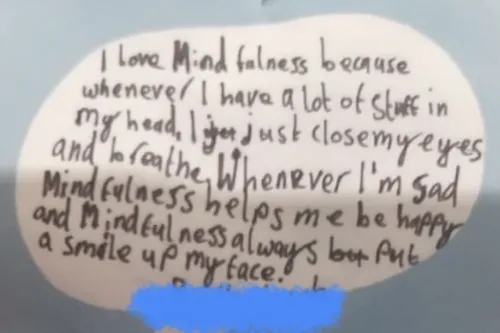 I love Mindfulness because
whenever I have a lot of stuff in
my head, I just close my eyes
and breathe, Whenever I'm sad
Mindfulness helps me be happy
and Mindfulness always put
a smile up my face.